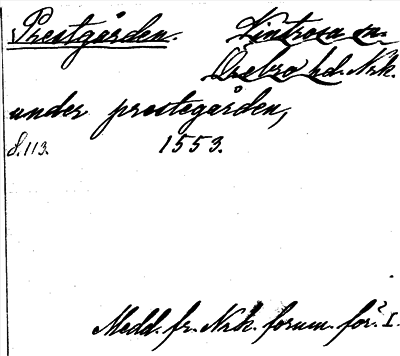 Prestgården. Kintrosa sn.
Örebro hd. Nrk.
under prestegården,
8.113. 1553.
Medd. fr. Nrk. fornm. för. I.